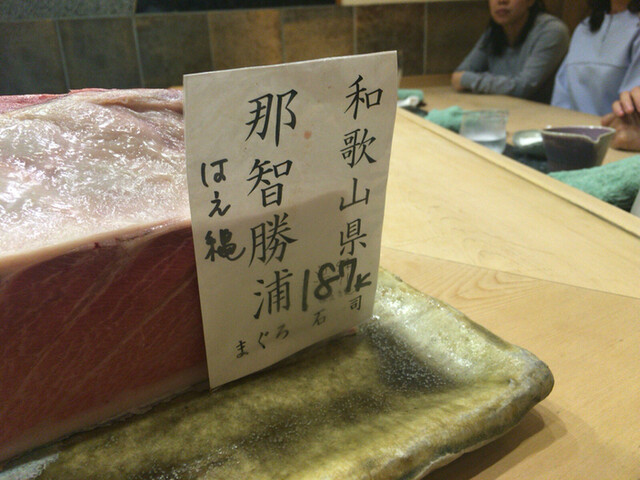 和歌山県
187K
那智勝浦
はえ縄
まぐろ 石司